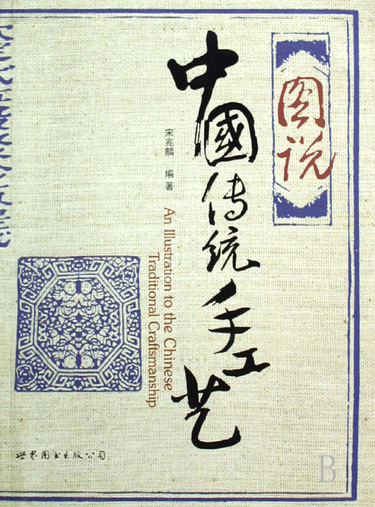 图说
中國传统手工艺
宋兆麟 编著
An Illustration to the Chinese
Traditional Craftsmanship
世界图书出版公司
B